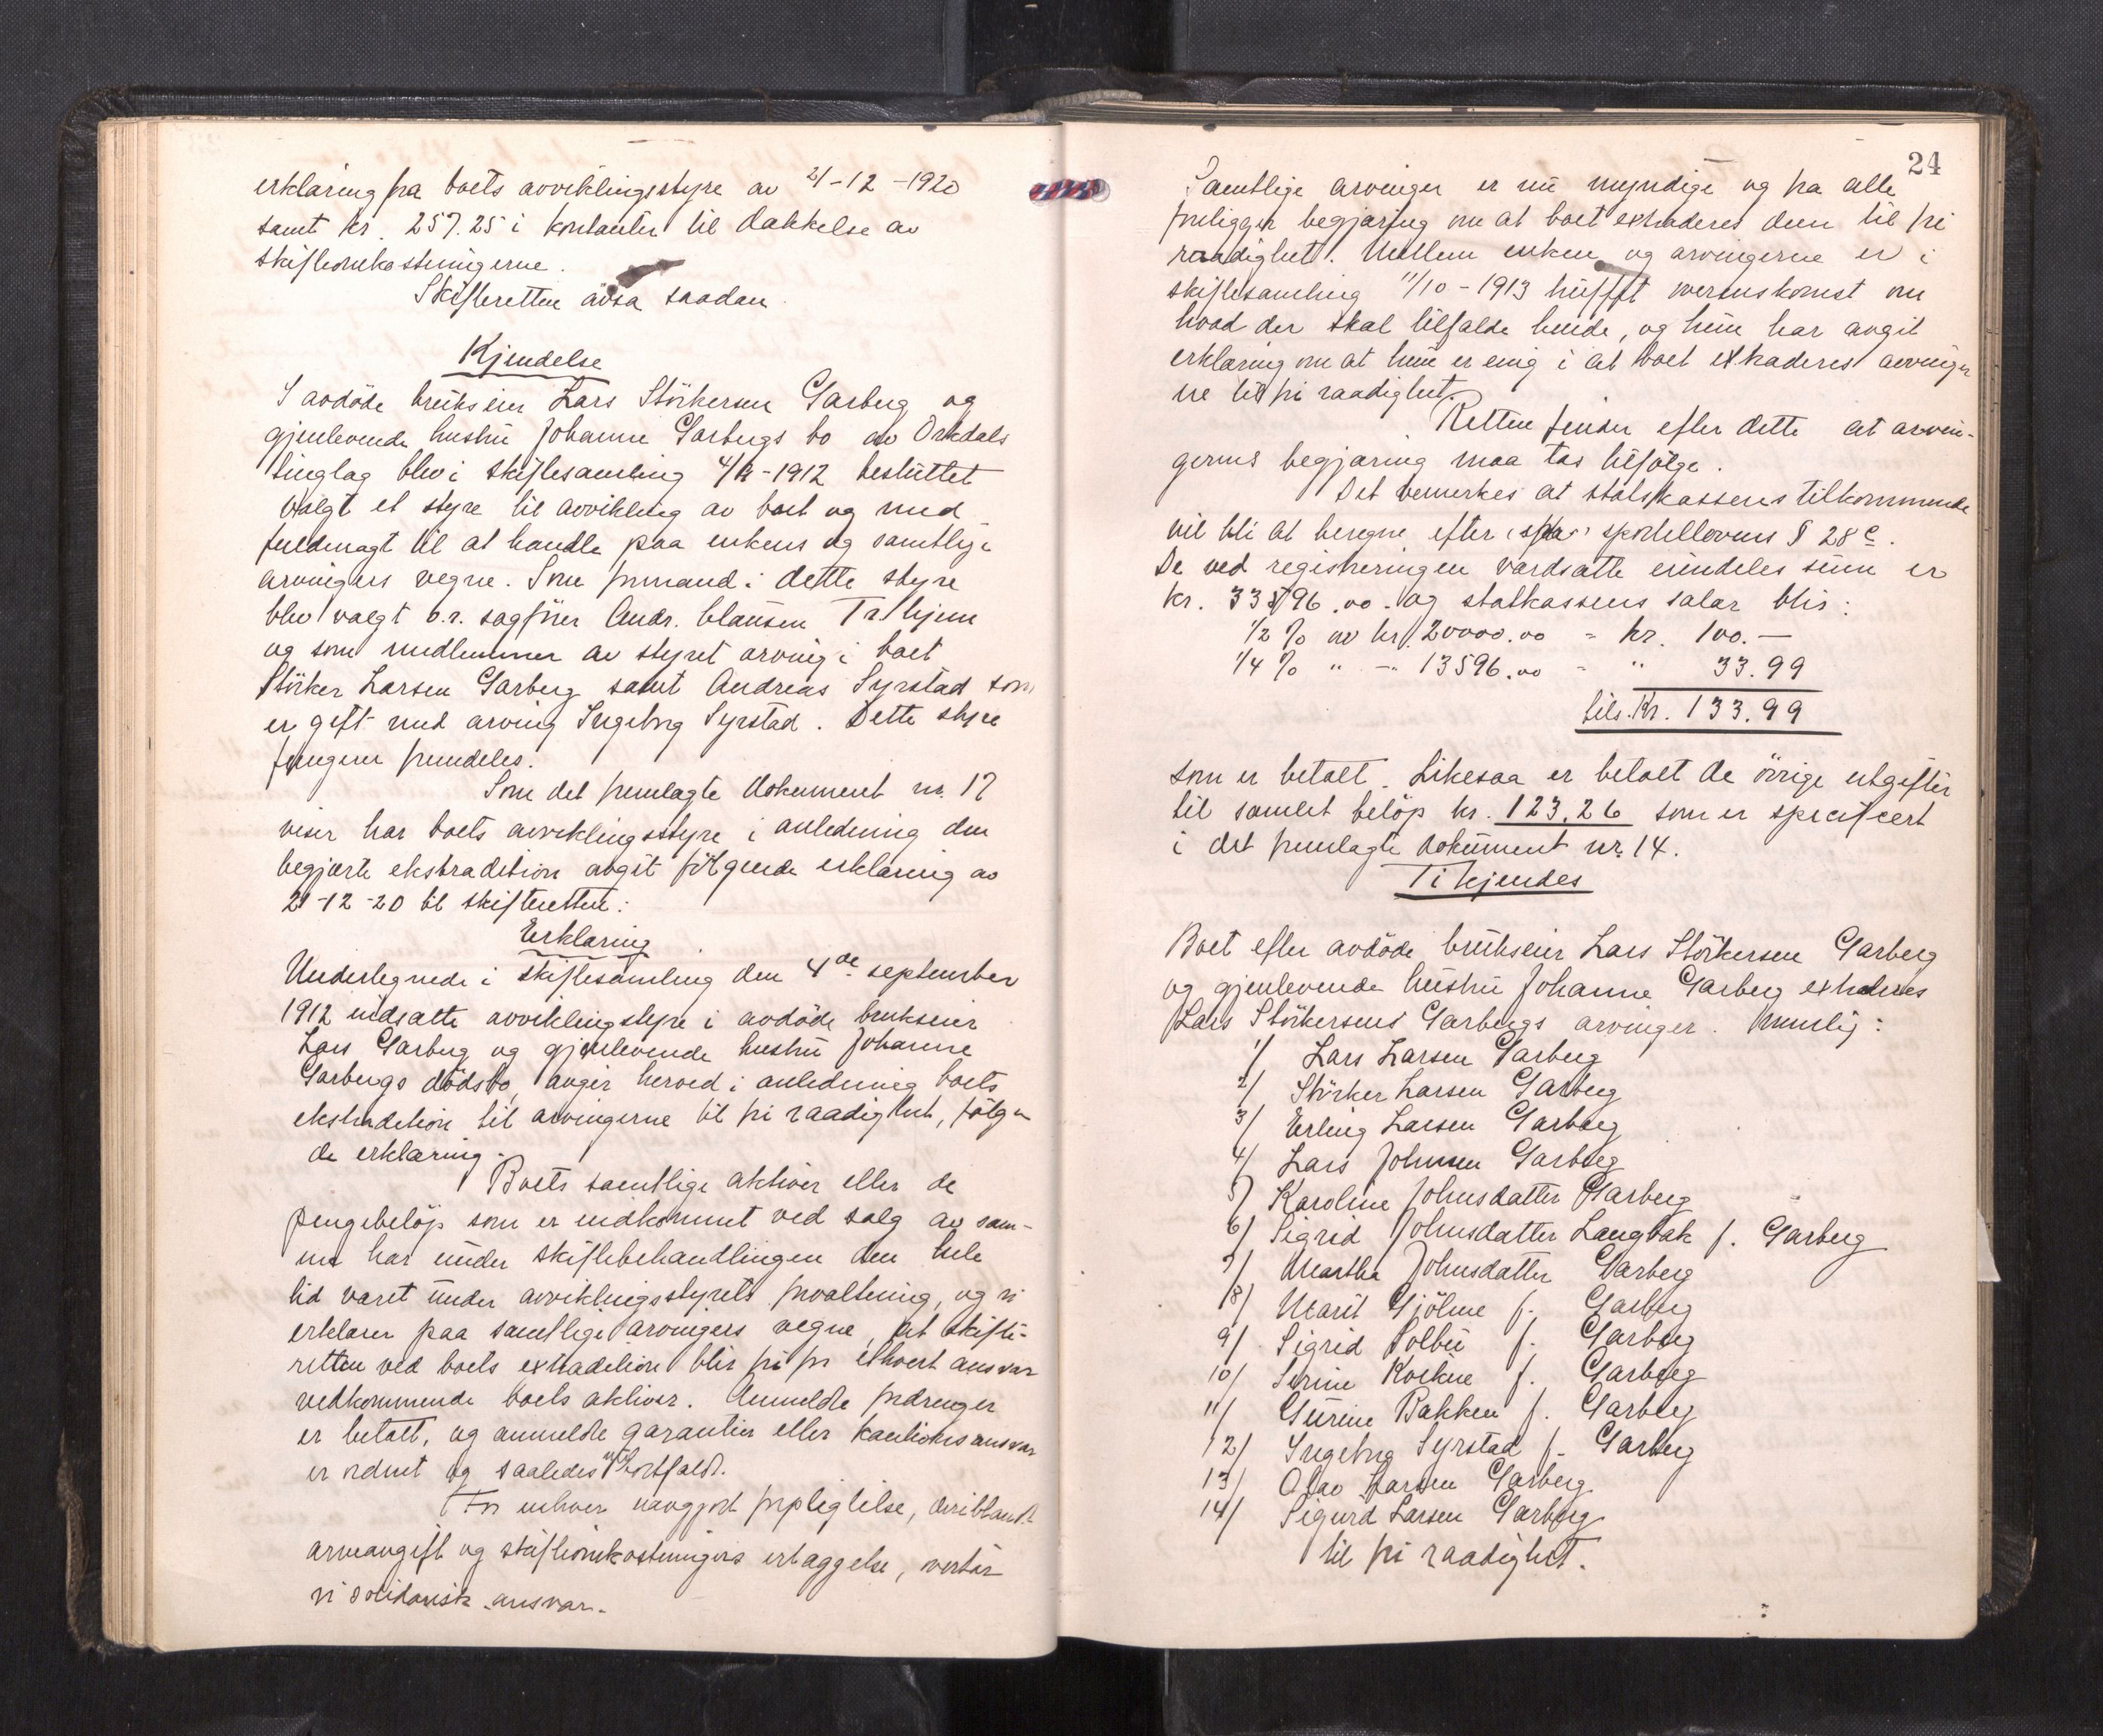 erklæring fra boets avviklingsstyre av 21-12-1920
samt kr. 257.25 i kontanter til dækkelse av
skifteomkostningerne.
Skifteretten avsa saadan
Kjendelse
I avdöde brukseier Lars Störkersen Garberg og
gjenlevende hustru Johanne Garbergs bo av Orkdals
tinglag blev i skiftesamling 4/9-1912 besluttet
valgt et styre til avvikling av boet og med
fuldmagt til at handle paa enkens og samtlige
arvingers vegne. Som formand i dette styre
blev valgt o.r. sagförer Andr. Clausen Tr.hjem
og som medlemmer av styret arving i boet
Störker Larsen Garberg samt Andreas Syrstad som
er gift med arving Ingeborg Syrstad. Dette styre
fungerer fremdeles.
Som det fremlagte dokument nr. 17
viser har boets avviklingsstyre i anledning den
begjærte ekstradition avgit fölgende erklæring av
21-12-20 til skifteretten:
Erklæring
Undertegnede i skiftesamling den 4de september
1912 indsatte avviklingstyre i avdöde brukseier
Lars Garberg og gjenlevende hustru Johanne
Garbergs dödsbo, avgir herved i anledning boets
ekstradition til arvingerne til fri raadighet, fölgen
de erklæring.
Boets samtlige aktiver eller de
pengebelöp som er indkommet ved salg av sam-
me har under skiftebehandlingen den hele
tid været under avviklingsstyrets forvaltning, og vi
erklærer paa samtlige arvingers vegne, at skifte-
retten ved boets extradition blir fri for ethvert ansvar
vedkommende boets aktiver. Anmeldte fordringer
er betalt, og anmeldte garantier eller kautionsansvar
er ordnet og saaledes bortfaldt.
For enhver uavgjort forpligtelse, deriblandt
arveavgift og skifteomkostningers erlæggelse, overtar
vi solidarisk ansvar.
24
Samtlige arvinger er nu myndige og fra alle
foreligger begjæring om at boet extraderes dem til fri
raadighet. Mellem enken og arvingerne er i
skiftesamling 11/10-1913 truffet overenskomst om
hvad der skal tilfalde hende, og hun har avgit
erklæring om at hun er enig i at boet extraderes arvinger
ne til fri raadighet.
Retten finder efter dette at arvin-
gernes begjæring maa tas tilfölge.
Det bemerkes at statskassens tilkommende
vil bli at beregne efter sportellovens § 28 c.
De ved registreringen værdsatte eiendeles sum er
kr. 33596.00 og statkassens salær blir:
1/2 % av kr. 20000.00 = kr. 100.—
1/4 % " - " 13596.00 = " 33.99
tils. Kr. 133.99
som er betalt. Likesaa er betalt de övrige utgifter
til samlet belöp kr. 123.26 som er specificert
i det fremlagte dokument nr. 14.
Ti kjendes
Boet efter avdöde brukseier Lars Störkersen Garberg
og gjenlevende hustru Johanne Garberg extraderes
Lars Störkersens Garbergs arvinger. Nemlig:
1/ Lars Larsen Garberg
2/ Störker Larsen Garberg
3/ Erling Larsen Garberg
4/ Lars Johnsen Garberg
5/ Karoline Johnsdatter Garberg
6/ Sigrid Johnsdatter Langbak f. Garberg
7/ Martha Johnsdatter Garberg
8/ Marit Gjölme f. Garberg
9/ Sigrid Solbu f. Garberg
10/ Serine f. Garberg
11/ Gurine Bakken f. Garberg
12/ Ingeborg Syrstad f. Garberg
13/ Olav Larsen Garberg
14/ Sigurd Larsen Garberg
til fri raadighet.